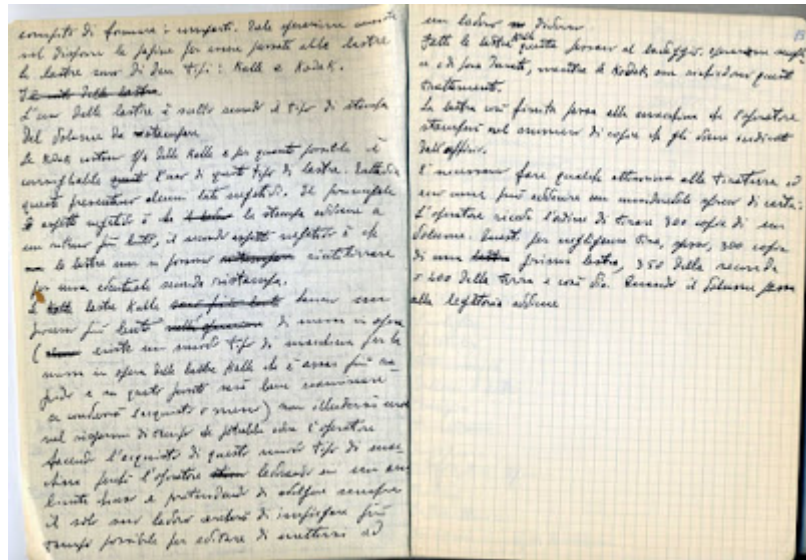 compito di fornire i
nel disporre le pagine per essere passate alle lastre
le lastre sono di due tipi: Kalle e Kodak.
L'uso delle lastre è scelto secondo il tipo di stampa
del volume da stampare
le Kodak costano delle Kalle e per quanto possibile è
consigliabile l'uso di questo tipo di lastre. Tuttavia
queste presentano alcuni lati negativi. Il principale
aspetto negativo è che la stampa avviene a
un ritmo più lento, il secondo aspetto negativo è che
le lastre non si possono riutilizzare
per una eventuale seconda ristampa.
lastre Kalle hanno un
processo più lento di messa in opera
( esiste un nuovo tipo di macchina per la
messa in opera delle lastre Kalle che è assai più ra-
pido e a questo punto sarà bene esaminare
se conviene l'acquisto o meno) non illudersi
nel risparmio di tempo che potrebbe dare l'operatore
facendo l'acquisto di questo nuovo tipo di mac-
china perché l'operatore lavorando in un am-
biente chiuso e pretendendo di svolgere sempre
il solo suo lavoro cercherà di impiegare più
tempo possibile per evitare di mettersi ad
un lavoro diverso
Fatte le lastre Kalle queste passano al lavaggio, operazione
mentre le Kodak non richiedono questo
trattamento.
La lastra così finita passa alla macchina che l'operatore
stamperà nel numero di copie che gli viene indicato
dall'ufficio.
È necessario fare qualche attenzione alla tiratura
può avvenire un considerevole spreco di carta:
L'operatore riceve l'ordine di tirare 300 copie di un
volume. Questi, per negligenza tira, spesso, 300 copie
di una prima lastra, 350 della seconda
o 400 della terza e così via. Quando il volume passa
alla legatoria avviene